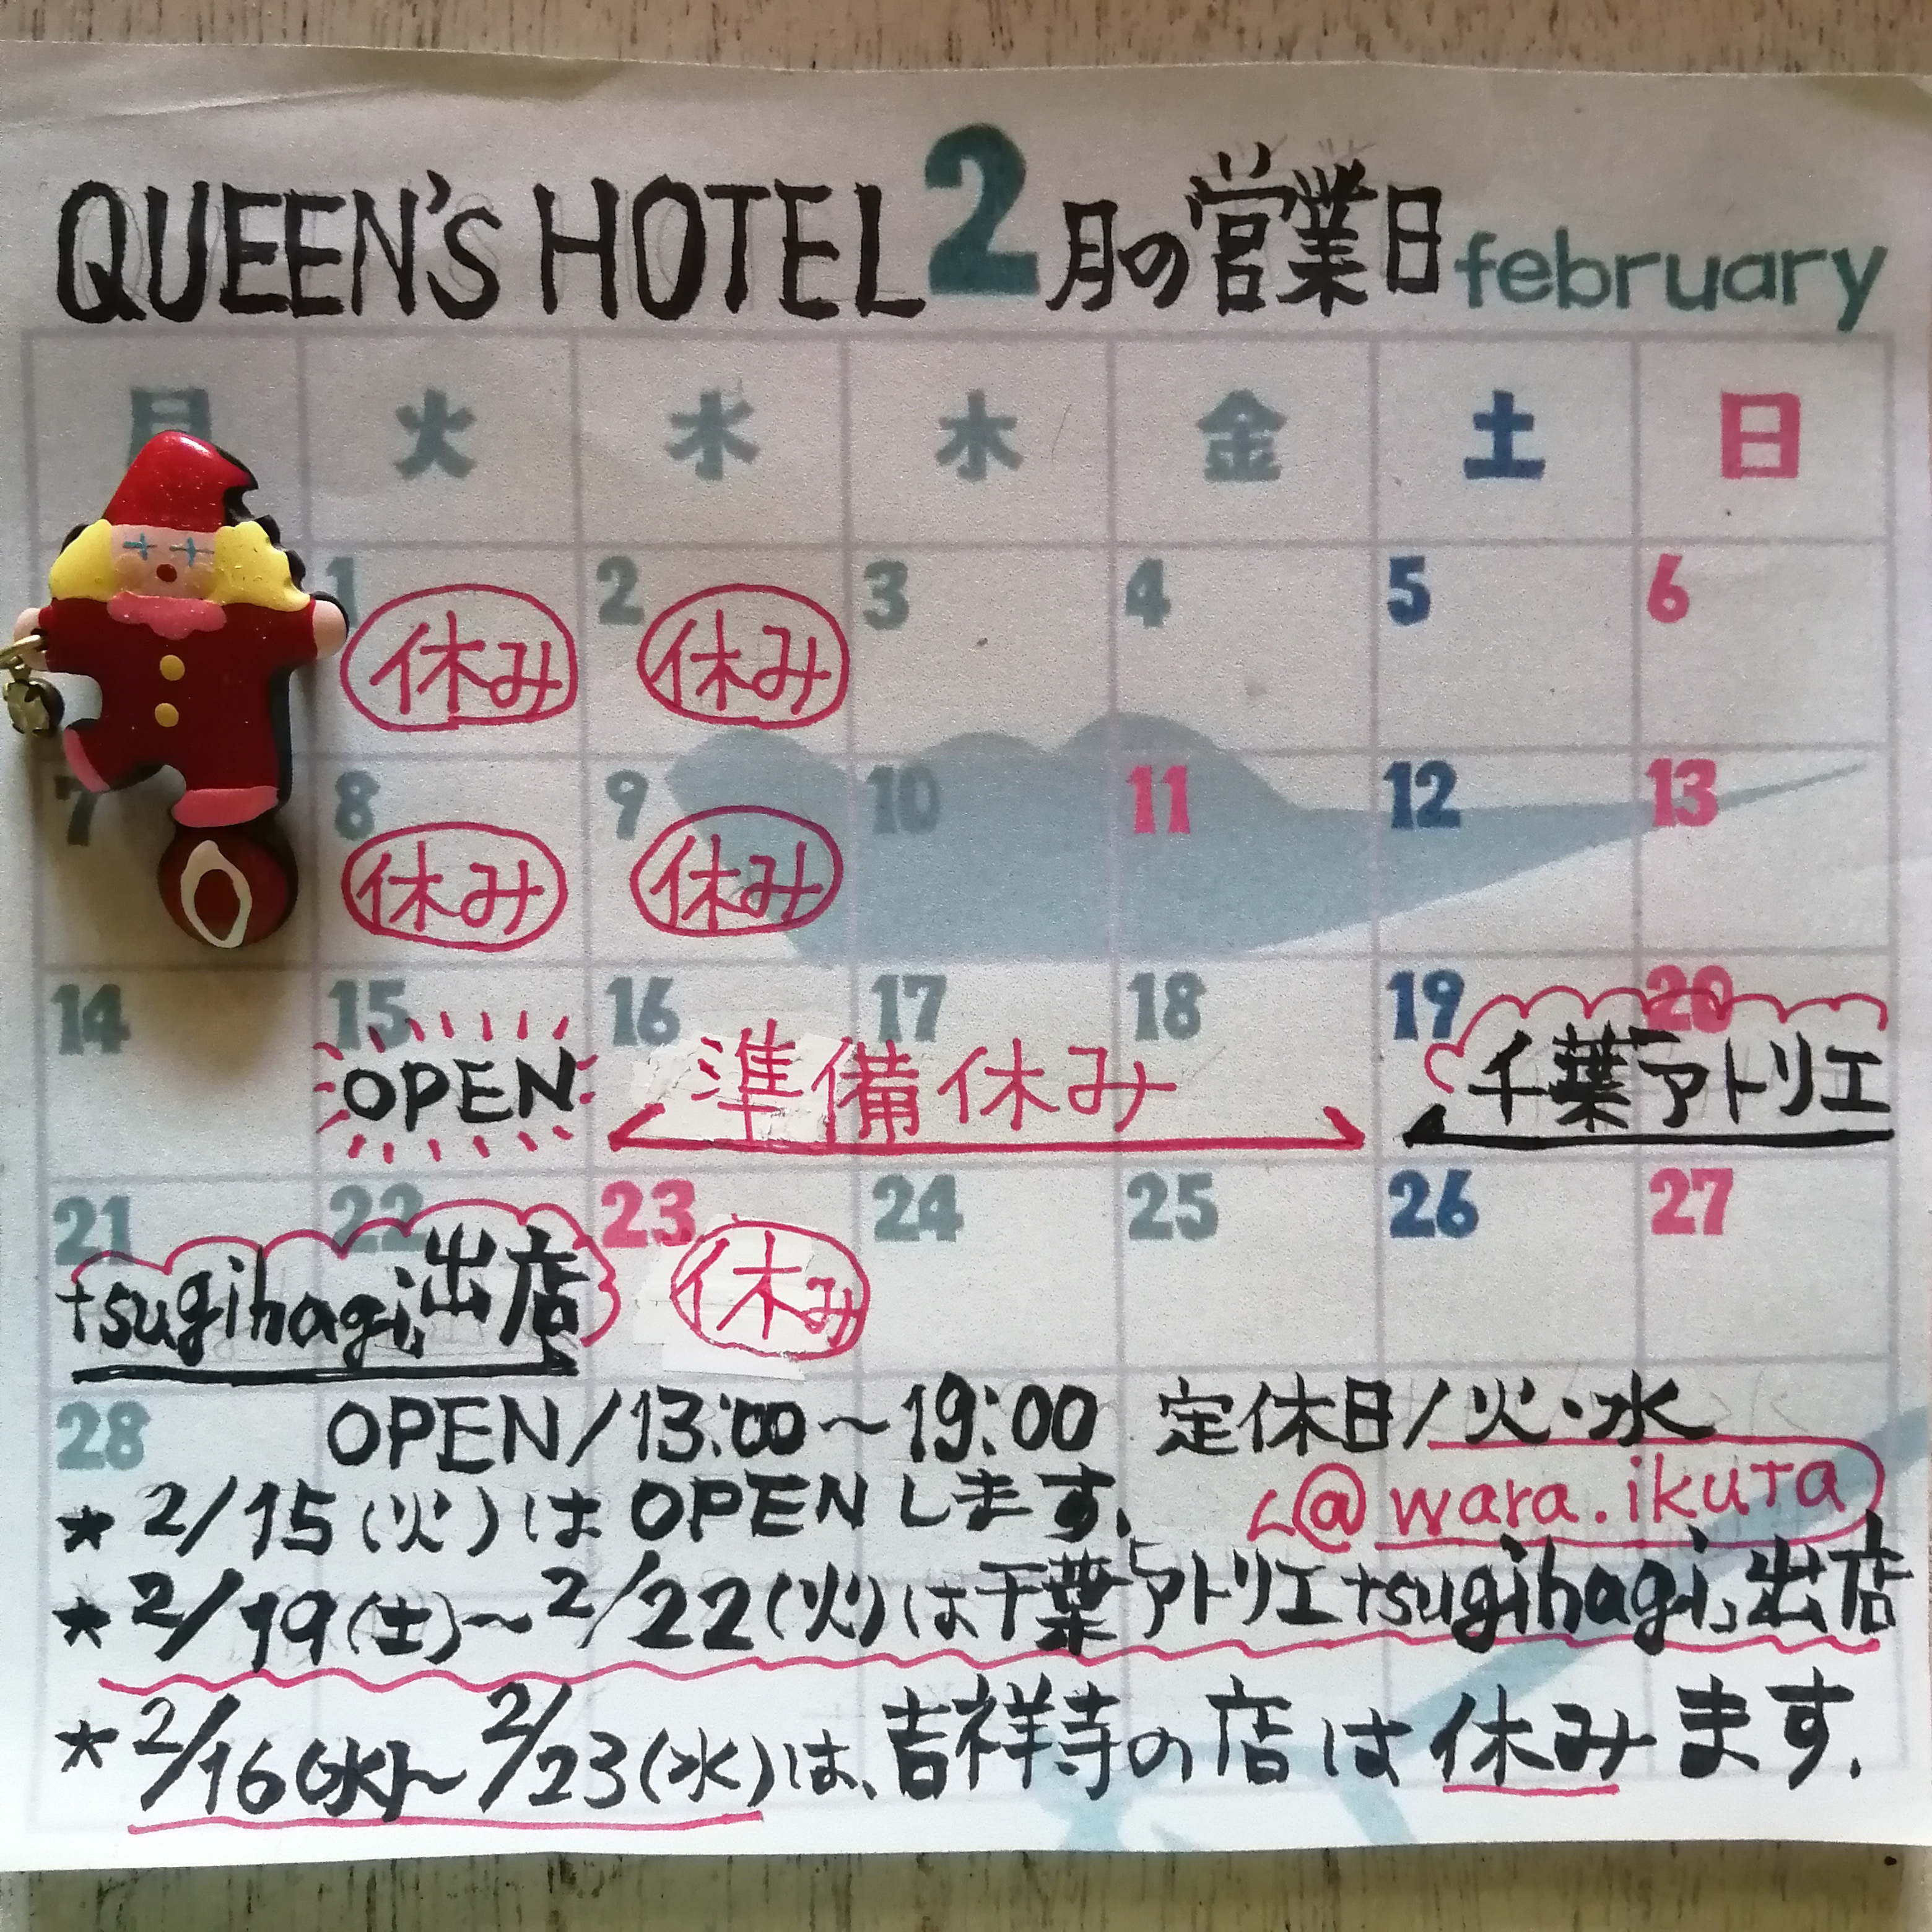 QUEEN'S HOTEL 2月の営業日 february
月 火 水 木 金 土 日
1 2 3 4 5 6
休み 休み
7 8 9 10 11 12 13
休み 休み
14 15 16 17 18 19 20
OPEN 準備休み 千葉アトリエ
21 22 23 24 25 26 27
tsugihagi出店 休み
28 OPEN/13:00〜19:00 定休日/火・水
★2/15(火)はOPENします。 @wara.ikuta
★2/19(土)〜2/22(火)は千葉「アトリエtsugihagi」出店
★2/16(水)〜2/23(水)は、吉祥寺の店は休みます.